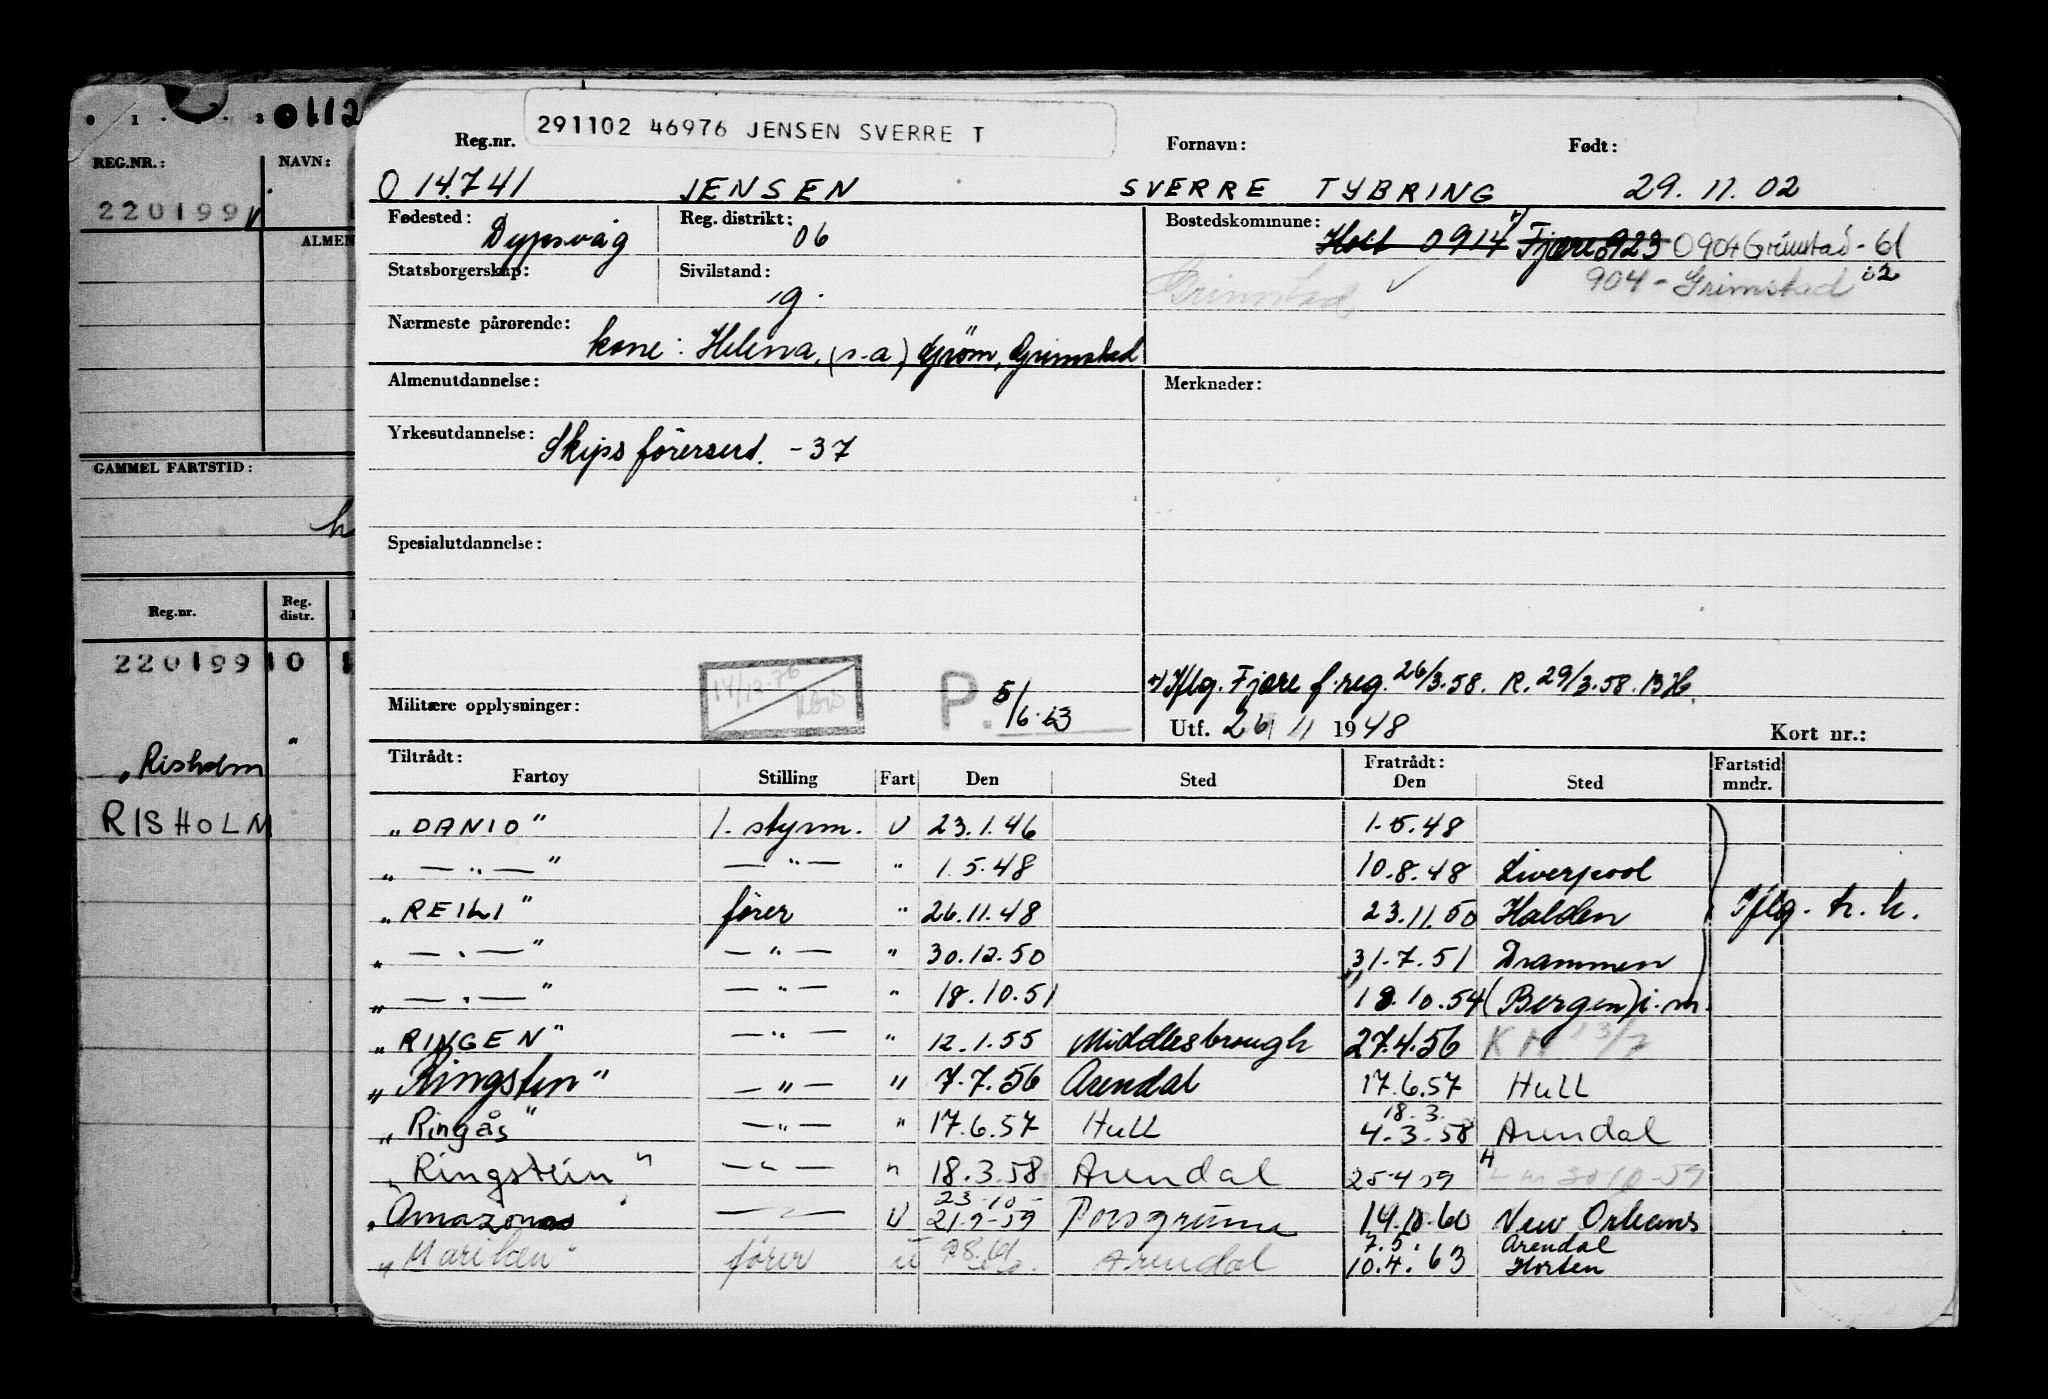 0112
REG.NR.: NAVN:
220199
ALMEN
GAMMEL FARTSTID:
h
Reg.nr. Reg. distr.
220199 10
„Risholm "
RISHOLM
291102 46976 JENSEN SVERRE T
Reg.nr. Fornavn: Født:
O 14.741 JENSEN SVERRE TYBRING 29.11.02
Fødested: Dypsvåg Reg. distrikt: 06 Bostedskommune: Holt 0914 Fjære 0923 0904 Grimstad - 61
Statsborgerskap: Sivilstand: g. Grimstad 904 - Grimstad 62
Nærmeste pårørende: kone: Helena, (s.a) Grøm, Grimstad
Almenutdannelse: Merknader:
Yrkesutdannelse: Skipsførersert. - 37
Spesialutdannelse:
14/12-76
P. 5/6.63
x) Iflg. Fjære f.reg. 26/3.58. R. 29/3.58.
Militære opplysninger: Utf. 26/11 1948 Kort nr.:
Tiltrådt: Fratrådt: Fartstid
Fartøy Stilling Fart Den Sted Den Sted mndr.
„DANIO" 1. styrm. U 23.1.46 1.5.48
„ — " — " — " — " 1.5.48 10.8.48 Liverpool
„REIHI" fører " 26.11.48 23.11.50 Halden Iflg. h.k.
„ — " — " — " — " 30.12.50 31.7.51 Drammen
„ — " — " — " — " 18.10.51 18.10.54 (Bergen) i.m.
„RINGEN" — " — " 12.1.55 Middlesbrough 27.4.56 KM 13/7
„Ringstein" — " — " 7.7.56 Arendal 17.6.57 Hull
18.3.
„Ringås" — " — " 17.6.57 Hull 4.3.58 Arendal
„Ringstein" — " — " 18.3.58 Arendal 25.4.59
23-10-
„Amazonas — " — U 21-9-59 Porsgrunn 14.10.60 New Orleans
7.5. Arendal
„Mariken" fører U Arendal 10.4.63 Horten